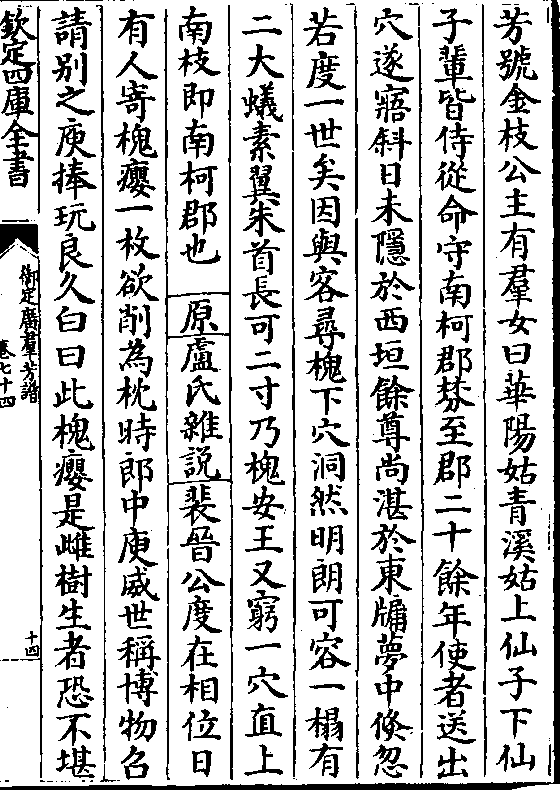 芳號金枝公主有羣女曰華陽姑青溪姑上仙子下仙
子輩皆侍從命守南柯郡棼至郡二十餘年使者送出
穴遂寤斜日未隱於西垣餘尊尚湛於東牖夢中倐忽
若度一世矣因與客尋槐下穴洞然明朗可容一榻有
二大蟻素翼朱首長可二寸乃槐安王又窮一穴直上
南枝即南柯郡也 原盧氏雜説裴晉公度在相位日
有人寄槐癭一枚欲削為枕時郎中庾威世稱博物召
請别之庾捧玩良久白曰此槐癭是雌樹生者恐不堪
欽定四庫全書
御定廣羣芳譜
卷七十四
十四